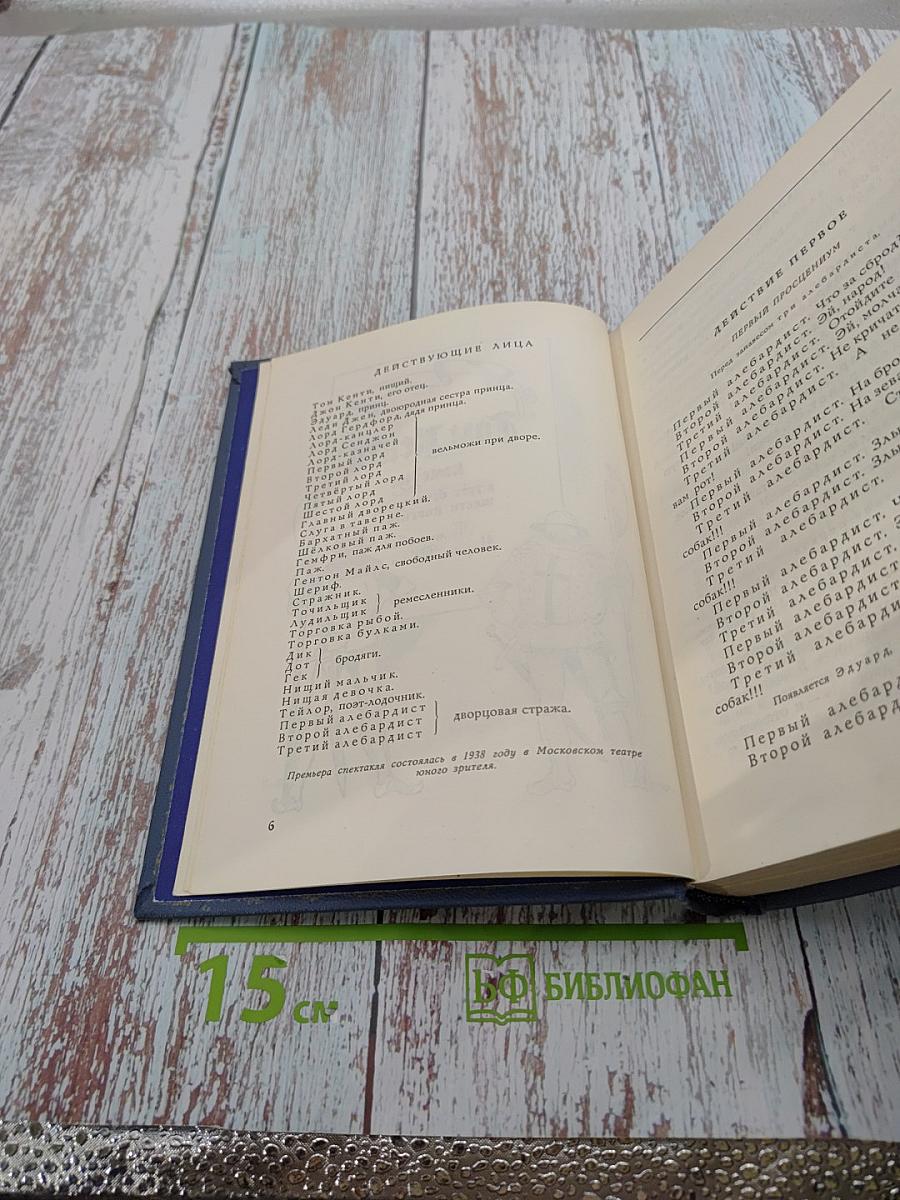 ДЕЙСТВУЮЩИЕ ЛИЦА
Том Кенти, нищий.
Джон Кенти, его отец.
Эдуард, принц.
Леди Джен, двоюродная сестра принца.
Лорд Гердфорд, дядя принца.
Лорд-канцлер
Лорд Сенджон
Лорд-казначей
Первый лорд
Второй лорд
Третий лорд
Четвёртый лорд
Пятый лорд
Шестой лорд
вельможи при дворе.
Главный дворецкий.
Слуга в таверне.
Бархатный паж.
Шёлковый паж.
Гемфри, паж для побоев.
Паж.
Гентон Майлс, свободный человек.
Шериф.
Стражник.
Точильщик
Лудильщик
ремесленники.
Торговка рыбой.
Торговка булками.
Дик
Дот
Гек
бродяги.
Нищий мальчик.
Нищая девочка.
Тейлор, поэт-лодочник.
Первый алебардист
Второй алебардист
Третий алебардист
дворцовая стража.
Премьера спектакля состоялась в 1938 году в Московском театре
юного зрителя.
6
ДЕЙСТВИЕ ПЕРВОЕ
ПЕРВЫЙ ПРОСЦЕНИУМ
Перед занавесом три алебардиста.
Первый алебардист. Что за сброд?
Второй алебардист. Эй, народ!
Третий алебардист. Отойдите
Первый алебардист. Эй, молча
Второй алебардист. Не кричат
Третий алебардист. А не
вам рот!
Первый алебардист. На бро
Второй алебардист. На зева
Третий алебардист. С
собак!!!
Первый алебардист. Злы
Второй алебардист. Злы
Третий алебардист.
собак!!!
Первый алебардист.
Второй алебардист.
Третий алебардист.
Первый алебардист
Второй алебардист
Третий алебарди
собак!!!
Появляется Эдуард,
Первый алебард
Второй алебард
15 см
БФ БИБЛИОФАН